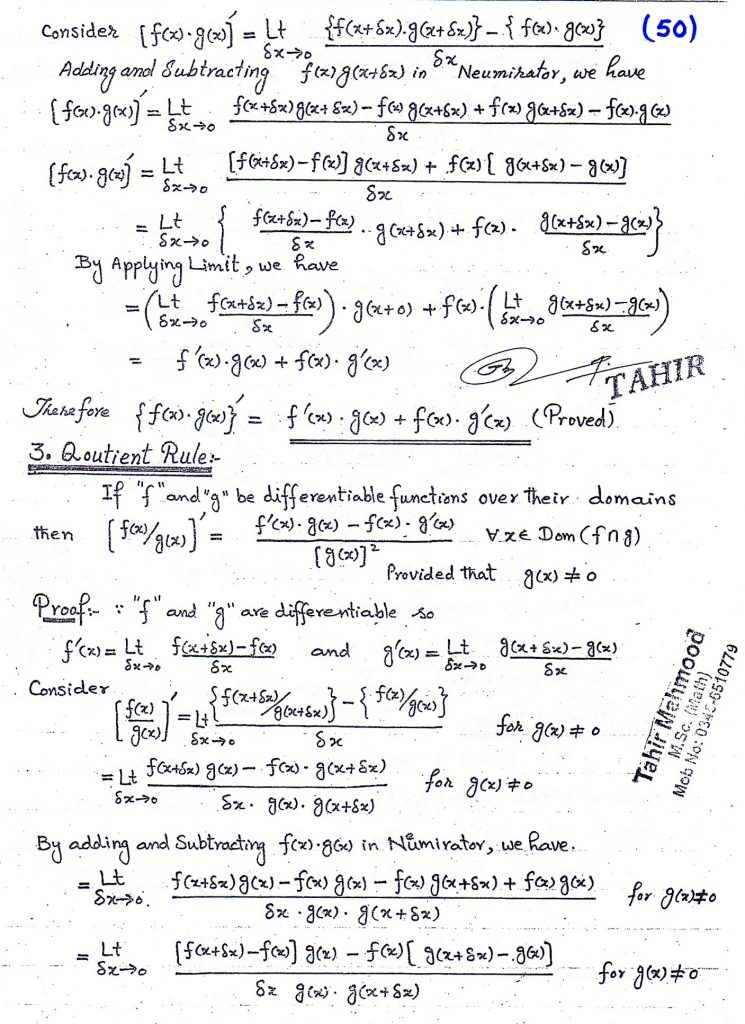 Consider [f(x)·g(x)]′ = Lt δx→0 {f(x+δx).g(x+δx)} – {f(x)·g(x)} / δx (50)
Adding and Subtracting f(x)g(x+δx) in Neumirator, we have
[f(x)·g(x)]′ = Lt δx→0 f(x+δx)g(x+δx) – f(x)g(x+δx) + f(x)g(x+δx) – f(x)·g(x) / δx
[f(x)·g(x)]′ = Lt δx→0 [f(x+δx) – f(x)] g(x+δx) + f(x)[g(x+δx) – g(x)] / δx
= Lt δx→0 { f(x+δx) – f(x) / δx · g(x+δx) + f(x) · g(x+δx) – g(x) / δx }
By Applying Limit, we have
= (Lt δx→0 f(x+δx) – f(x) / δx) · g(x+0) + f(x)·(Lt δx→0 g(x+δx) – g(x) / δx)
= f′(x)·g(x) + f(x)·g′(x)
TAHIR
Therefore {f(x)·g(x)}′ = f′(x)·g(x) + f(x)·g′(x) (Proved)
3. Qoutient Rule:-
If "f" and "g" be differentiable functions over their domains
then [f(x)/g(x)]′ = f′(x)·g(x) – f(x)·g′(x) / [g(x)]² ∀ x ∈ Dom(f∩g)
Provided that g(x) ≠ 0
Proof:- ∵ "f" and "g" are differentiable so
f′(x) = Lt δx→0 f(x+δx) – f(x) / δx and g′(x) = Lt δx→0 g(x+δx) – g(x) / δx
Consider
[f(x)/g(x)]′ = Lt δx→0 {f(x+δx)/g(x+δx)} – {f(x)/g(x)} / δx for g(x) ≠ 0
= Lt δx→0 f(x+δx)g(x) – f(x)·g(x+δx) / δx·g(x)·g(x+δx) for g(x) ≠ 0
Tahir Mahmood
M.Sc. (Math)
By adding and Subtracting f(x)·g(x) in Numirator, we have.
= Lt δx→0 f(x+δx)g(x) – f(x)g(x) – f(x)g(x+δx) + f(x)g(x) / δx·g(x)·g(x+δx) for g(x)≠0
= Lt δx→0 [f(x+δx)–f(x)] g(x) – f(x)[g(x+δx) – g(x)] / δx g(x)·g(x+δx) for g(x) ≠ 0